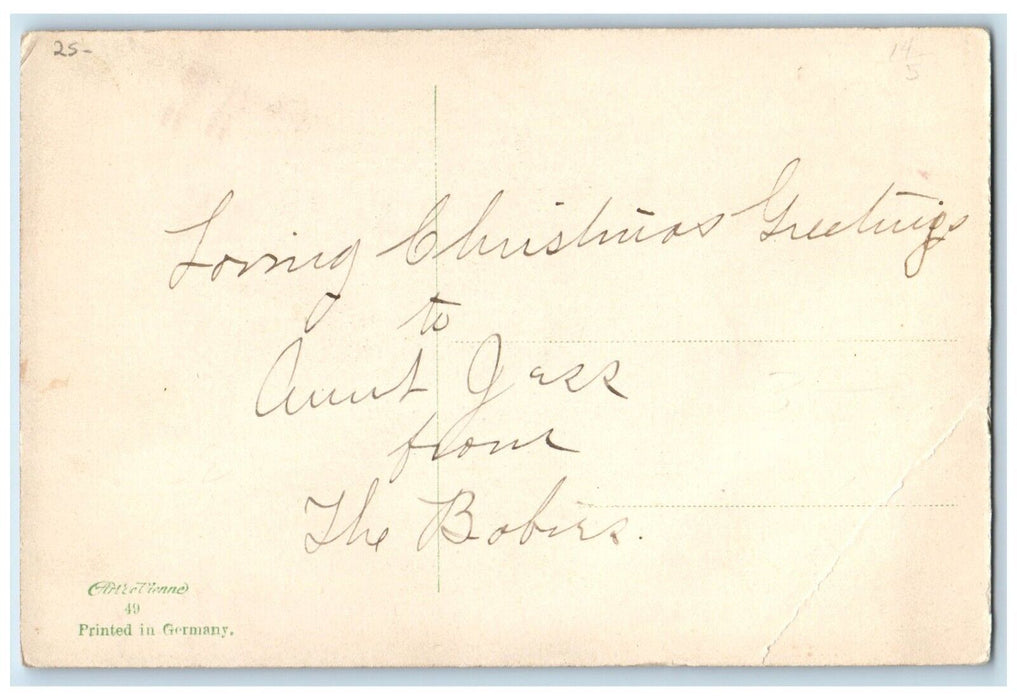 25-
14
5
Loving Christmas Greetings
to
Aunt Jess
from
The Bobiers.
49
Printed in Germany.